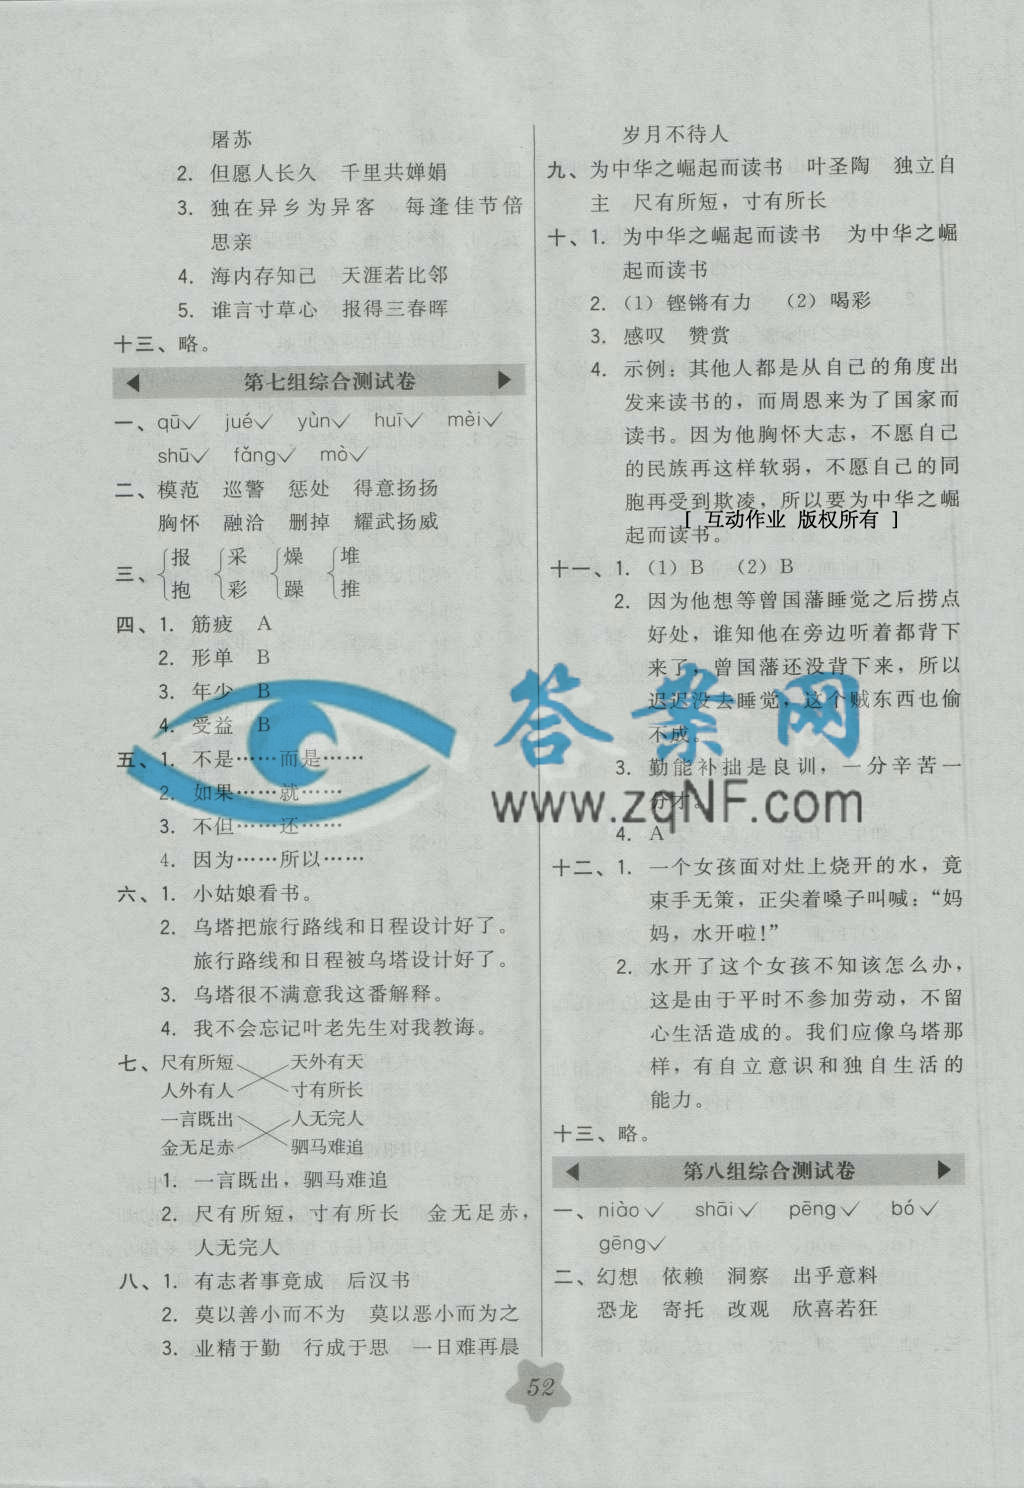 屠苏
2. 但愿人长久　千里共婵娟
3. 独在异乡为异客　每逢佳节倍
思亲
4. 海内存知己　天涯若比邻
5. 谁言寸草心　报得三春晖
十三、略。
第七组综合测试卷
一、qū✓　jué✓　yùn✓　huī✓　mèi✓
shū✓　fǎng✓　mò✓
二、模范　巡警　惩处　得意扬扬
胸怀　融洽　删掉　耀武扬威
三、{报 抱　{采 彩　{燥 躁　{堆 推
四、1. 筋疲　A
2. 形单　B
3. 年少　B
4. 受益　B
五、1. 不是……而是……
2. 如果……就……
3. 不但……还……
4. 因为……所以……
六、1. 小姑娘看书。
2. 乌塔把旅行路线和日程设计好了。
旅行路线和日程被乌塔设计好了。
3. 乌塔很不满意我这番解释。
4. 我不会忘记叶老先生对我教诲。
七、尺有所短　天外有天
人外有人　寸有所长
一言既出　人无完人
金无足赤　驷马难追
1. 一言既出，驷马难追
2. 尺有所短，寸有所长　金无足赤，
人无完人
八、1. 有志者事竟成　后汉书
2. 莫以善小而不为　莫以恶小而为之
3. 业精于勤　行成于思　一日难再晨
岁月不待人
九、为中华之崛起而读书　叶圣陶　独立自
主　尺有所短，寸有所长
十、1. 为中华之崛起而读书　为中华之崛
起而读书
2. （1）铿锵有力　（2）喝彩
3. 感叹　赞赏
4. 示例：其他人都是从自己的角度出
发来读书的，而周恩来为了国家而
读书。因为他胸怀大志，不愿自己
的民族再这样软弱，不愿自己的同
胞再受到欺凌，所以要为中华之崛
起而读书。
[ 互动作业 版权所有 ]
十一、1. （1）B　（2）B
2. 因为他想等曾国藩睡觉之后捞点
好处，谁知他在旁边听着都背下
来了，曾国藩还没背下来，所以
迟迟没去睡觉，这个贼东西也偷
不成。
3. 勤能补拙是良训，一分辛苦一
分才。
4. A
答案网
www.zqNF.com
十二、1. 一个女孩面对灶上烧开的水，竟
束手无策，正尖着嗓子叫喊：“妈
妈，水开啦！”
2. 水开了这个女孩不知该怎么办，
这是由于平时不参加劳动，不留
心生活造成的。我们应像乌塔那
样，有自立意识和独自生活的
能力。
十三、略。
第八组综合测试卷
一、niào✓　shāi✓　pēng✓　bó✓
gēng✓
二、幻想　依赖　洞察　出乎意料
恐龙　寄托　改观　欣喜若狂
52